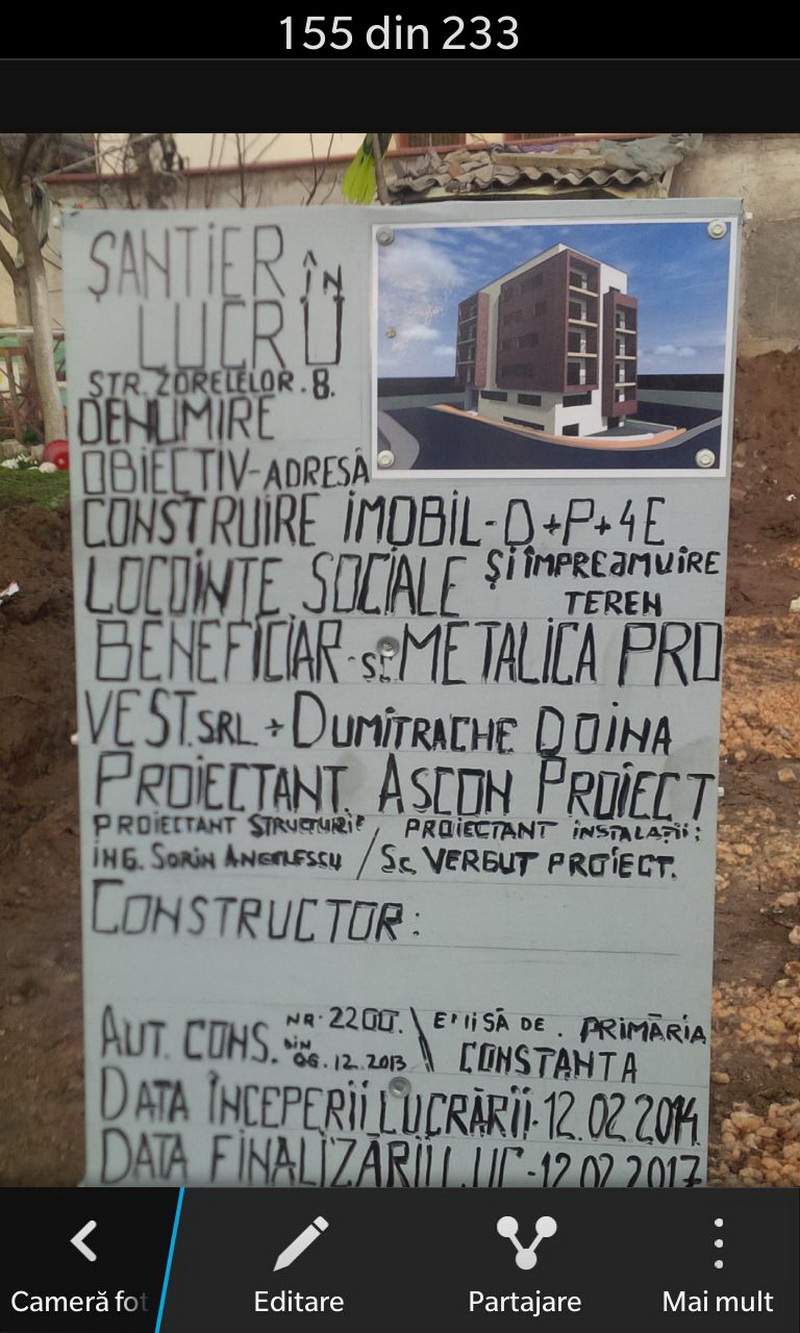 155 din 233
ȘANTiER ÎN
LUCRU
STR. ZORELELOR. 8.
DENUMIRE
OBIECTIV-ADRESĂ
CONSTRUIRE IMOBIL-D+P+4E
LOCUINȚE SOCIALE ȘI ÎMPREJMUIRE
TEREN
BENEFICIAR-SC METALICA PRO
VEST.SRL + DUMITRACHE DOINA
PROIECTANT. ASCON PROIECT
PROIECTANT STRUCTURI / PROIECTANT INSTALAȚII:
ING. SORIN ANGELESCU / SC VERBUT PROIECT.
CONSTRUCTOR:
AUT. CONS. NR. 2200. \ EMISĂ DE. PRIMĂRIA
DIN 06.12.2013 \ CONSTANTA
DATA ÎNCEPERII LUCRĂRII-12.02.2014
DATA FINALIZĂRII LUC-12.02.2017
Cameră fot
Editare
Partajare
Mai mult